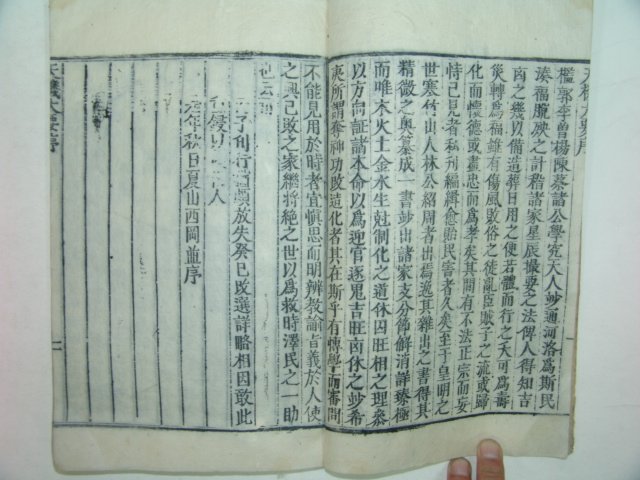 天機大要序
檻郭李曾楊陳慕諸公學究天人妙通河洛爲斯民
湊福脫殃之計稽諸家星辰撮要之法俾人得知吉
凶之幾以備造葬日用之便若體而行之夭可爲壽
災轉爲福雖有傷風敗俗之徒亂臣賊子之流或歸
化而懷德或盡忠而爲孝矣其間有不法正宗而妄
恃已見者私刊編緝愈貽民害者久矣至于皇明之
世寒竹山人林公紹周者出焉逸其雜出之書得其
精微之奧纂成一書妙出諸家支分節解消詳臻極
而唯木火土金水生尅制化之道休囚旺相之理叅
以方向証諸本命以爲迎官逐鬼吉旺凶休之妙希
夷所謂奪神功改造化者其在斯乎有博學而審問
不能見用於時者宜愼思而明辨教論皆義於人使
之興已敗之家繼將絶之世以爲救時澤民之一助
也云
子刊行 頗放失癸巳改選詳略相因敢此
人
年秋日夏山西岡 序
天機大要序